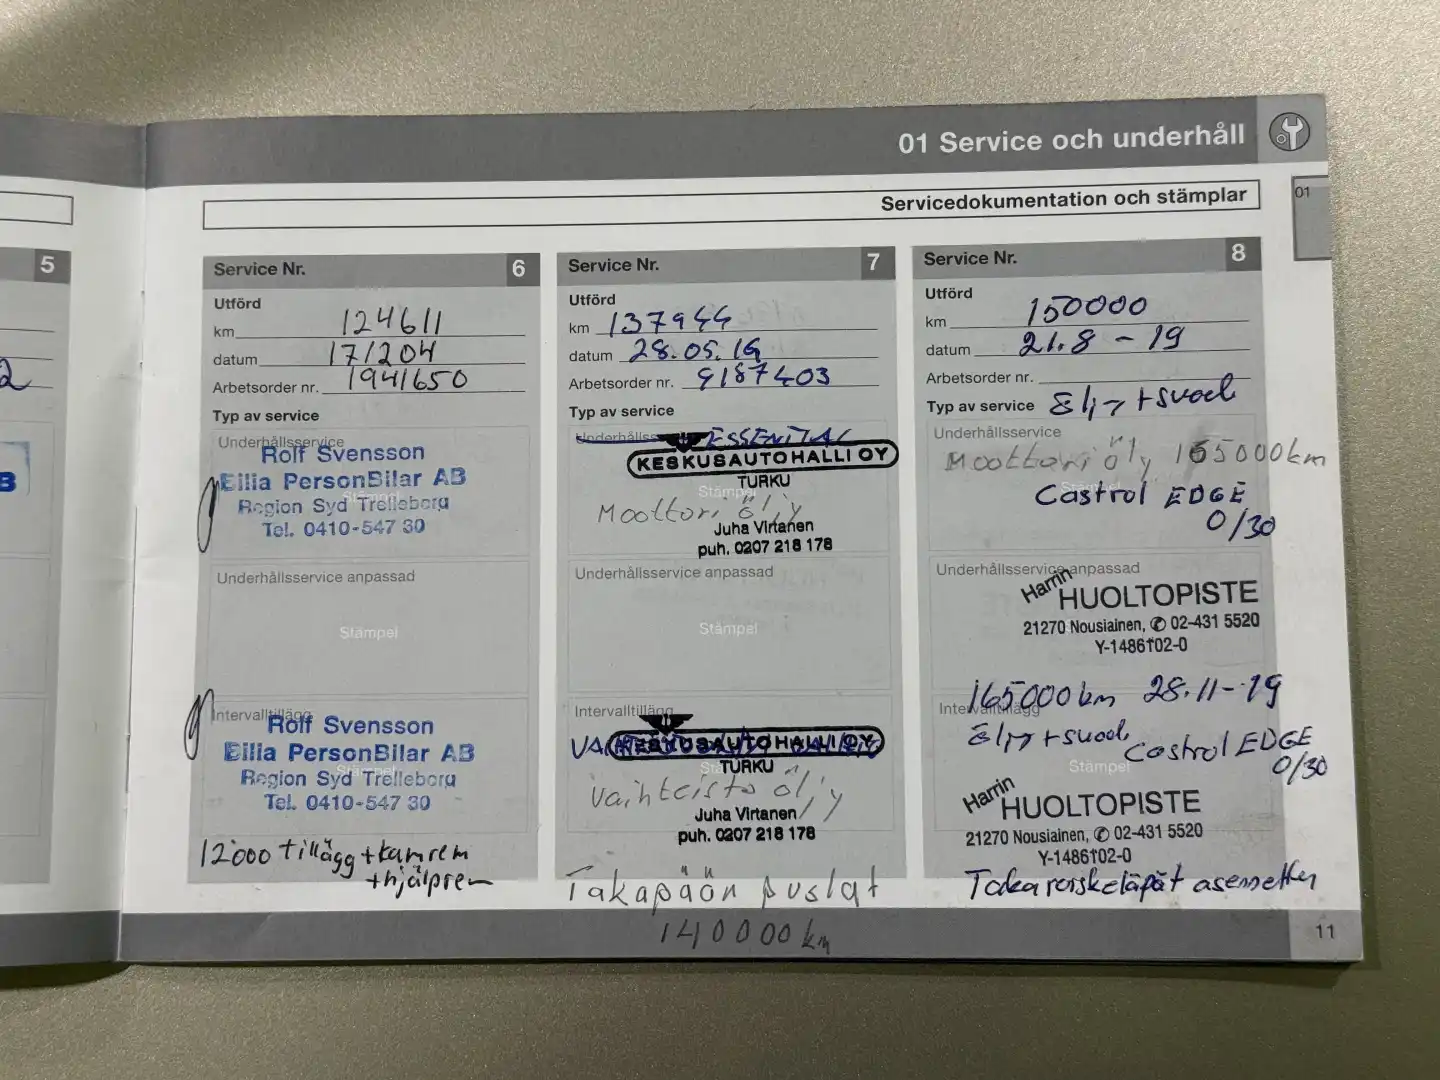 01 Service och underhåll
01
Servicedokumentation och stämplar
5
2
B
Service Nr. 6
Utförd
km 124611
datum 171204
Arbetsorder nr. 1941650
Typ av service
Underhållsservice
Rolf Svensson
Eilia PersonBilar AB
Stämpel
Region Syd Trelleborg
Tel. 0410-547 30
Underhållsservice anpassad
Stämpel
Intervalltillägg
Rolf Svensson
Eilia PersonBilar AB
Stämpel
Region Syd Trelleborg
Tel. 0410-547 30
12000 tillägg + kamrem
+ hjälprem
Service Nr. 7
Utförd
km 137944
datum 28.05.19
Arbetsorder nr. 9187403
Typ av service
ESSENTIAL
KESKUSAUTOHALLI OY
TURKU
Stämpel
Moottori öljy
Juha Virtanen
puh. 0207 218 178
Underhållsservice anpassad
Stämpel
Intervalltillägg
KESKUSAUTOHALLI OY
TURKU
Vaihteisto öljy
Juha Virtanen
puh. 0207 218 178
Takapään puslat
140000 km
Service Nr. 8
Utförd
km 150000
datum 21.8 - 19
Arbetsorder nr.
Typ av service öljy + suod
Underhållsservice
Moottori öljy 165000 km
Stämpel
Castrol EDGE
0/30
Underhållsservice anpassad
Harrin
HUOLTOPISTE
21270 Nousiainen, ✆ 02-431 5520
Y-1486102-0
165000 km 28.11-19
Intervalltillägg
öljy + suod. Castrol EDGE
Stämpel
0/30
Harrin
HUOLTOPISTE
21270 Nousiainen, ✆ 02-431 5520
Y-1486102-0
Takaroiskeläpät asennettu
11